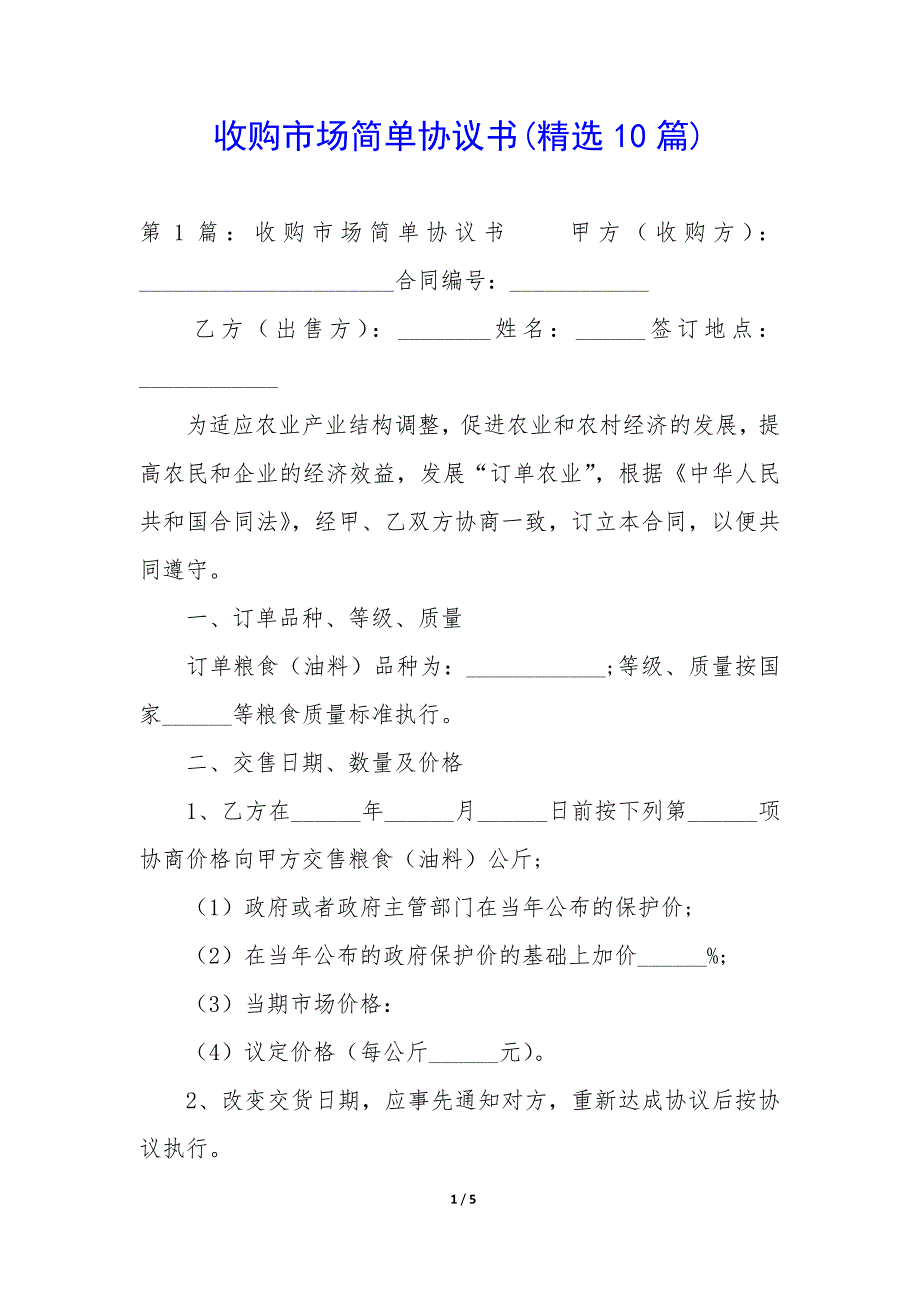 收购市场简单协议书(精选10篇)
第1篇：收购市场简单协议书 甲方（收购方）：
______________________合同编号：____________
乙方（出售方）：________姓名：______签订地点：
____________
为适应农业产业结构调整，促进农业和农村经济的发展，提
高农民和企业的经济效益，发展“订单农业”，根据《中华人民
共和国合同法》，经甲、乙双方协商一致，订立本合同，以便共
同遵守。
一、订单品种、等级、质量
订单粮食（油料）品种为：____________;等级、质量按国
家______等粮食质量标准执行。
二、交售日期、数量及价格
1、乙方在______年______月______日前按下列第______项
协商价格向甲方交售粮食（油料）公斤;
（1）政府或者政府主管部门在当年公布的保护价;
（2）在当年公布的政府保护价的基础上加价______%;
（3）当期市场价格：
（4）议定价格（每公斤______元）。
2、改变交货日期，应事先通知对方，重新达成协议后按协
议执行。
1 / 5